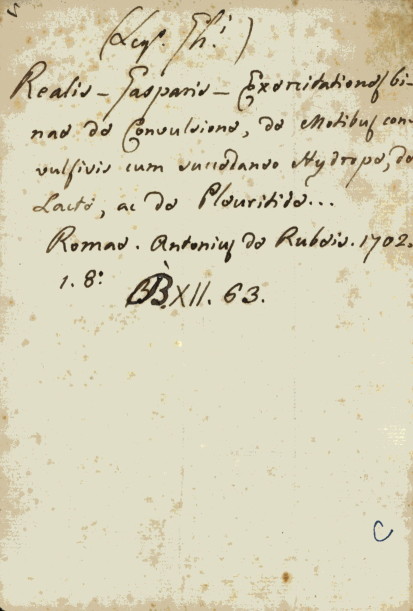 (Leg. Th.)
Realis - Gasparis - Exercitationes bi-
nae de Convulsione, de Motibus con-
vulsivis cum succedaneo Hydrope, de
Lacte, ac de Pleuritide...
Romae. Antonius de Rubeis. 1702.
1. 8º
BB. XII. 63.
C